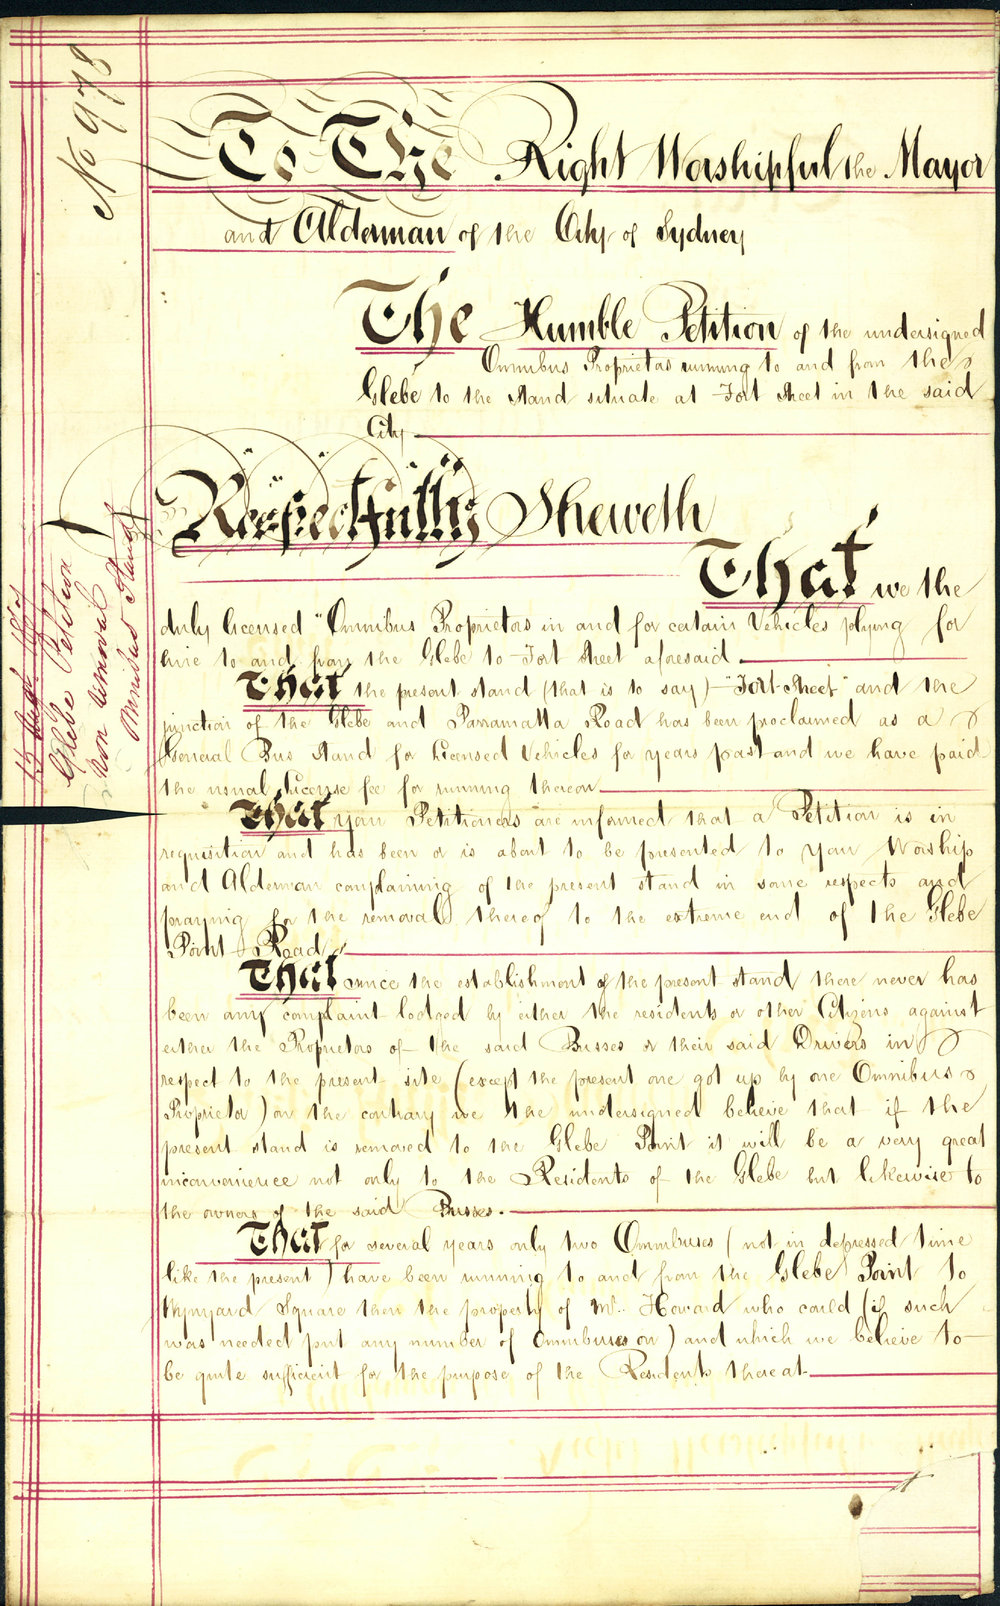 No 978
To The Right Worshipful the Mayor
and Alderman of the City of Sydney
The Humble Petition of the undersigned
Omnibus Proprietors running to and from the
Glebe to the stand situate at Fort Street in the said
City
Respectfully Sheweth
That we the
duly licensed "Omnibus Proprietors in and for certain Vehicles plying for
hire to and from the Glebe to Fort Street aforesaid.
That the present stand (that is to say) "Fort Street" and the
junction of the Glebe and Parramatta Road has been proclaimed as a
General Bus Stand for Licensed Vehicles for years past and we have paid
the usual License fee for running thereon
That your Petitioners are informed that a Petition is in
requisition and has been or is about to be presented to your Worship
and Alderman complaining of the present stand in some respects and
praying for the removal thereof to the extreme end of the Glebe
Point Road
That since the establishment of the present stand there never has
been any complaint lodged by either the residents or other Citizens against
either the Proprietors of the said Busses or their said Drivers in
respect to the present site (except the present one got up by one Omnibus
Proprietor) on the contrary we the undersigned believe that if the
present stand is removed to the Glebe Point it will be a very great
inconvenience not only to the Residents of the Glebe but likewise to
the owners of the said Busses.
That for several years only two Omnibuses (not in depressed time
like the present) have been running to and from the Glebe Point to
Wynyard Square then the property of Mr. Howard who could (if such
was needed put any number of Omnibuses on) and which we believe to
be quite sufficient for the purpose of the Residents thereat
Glebe Petition
Non removal
Omnibus Stand